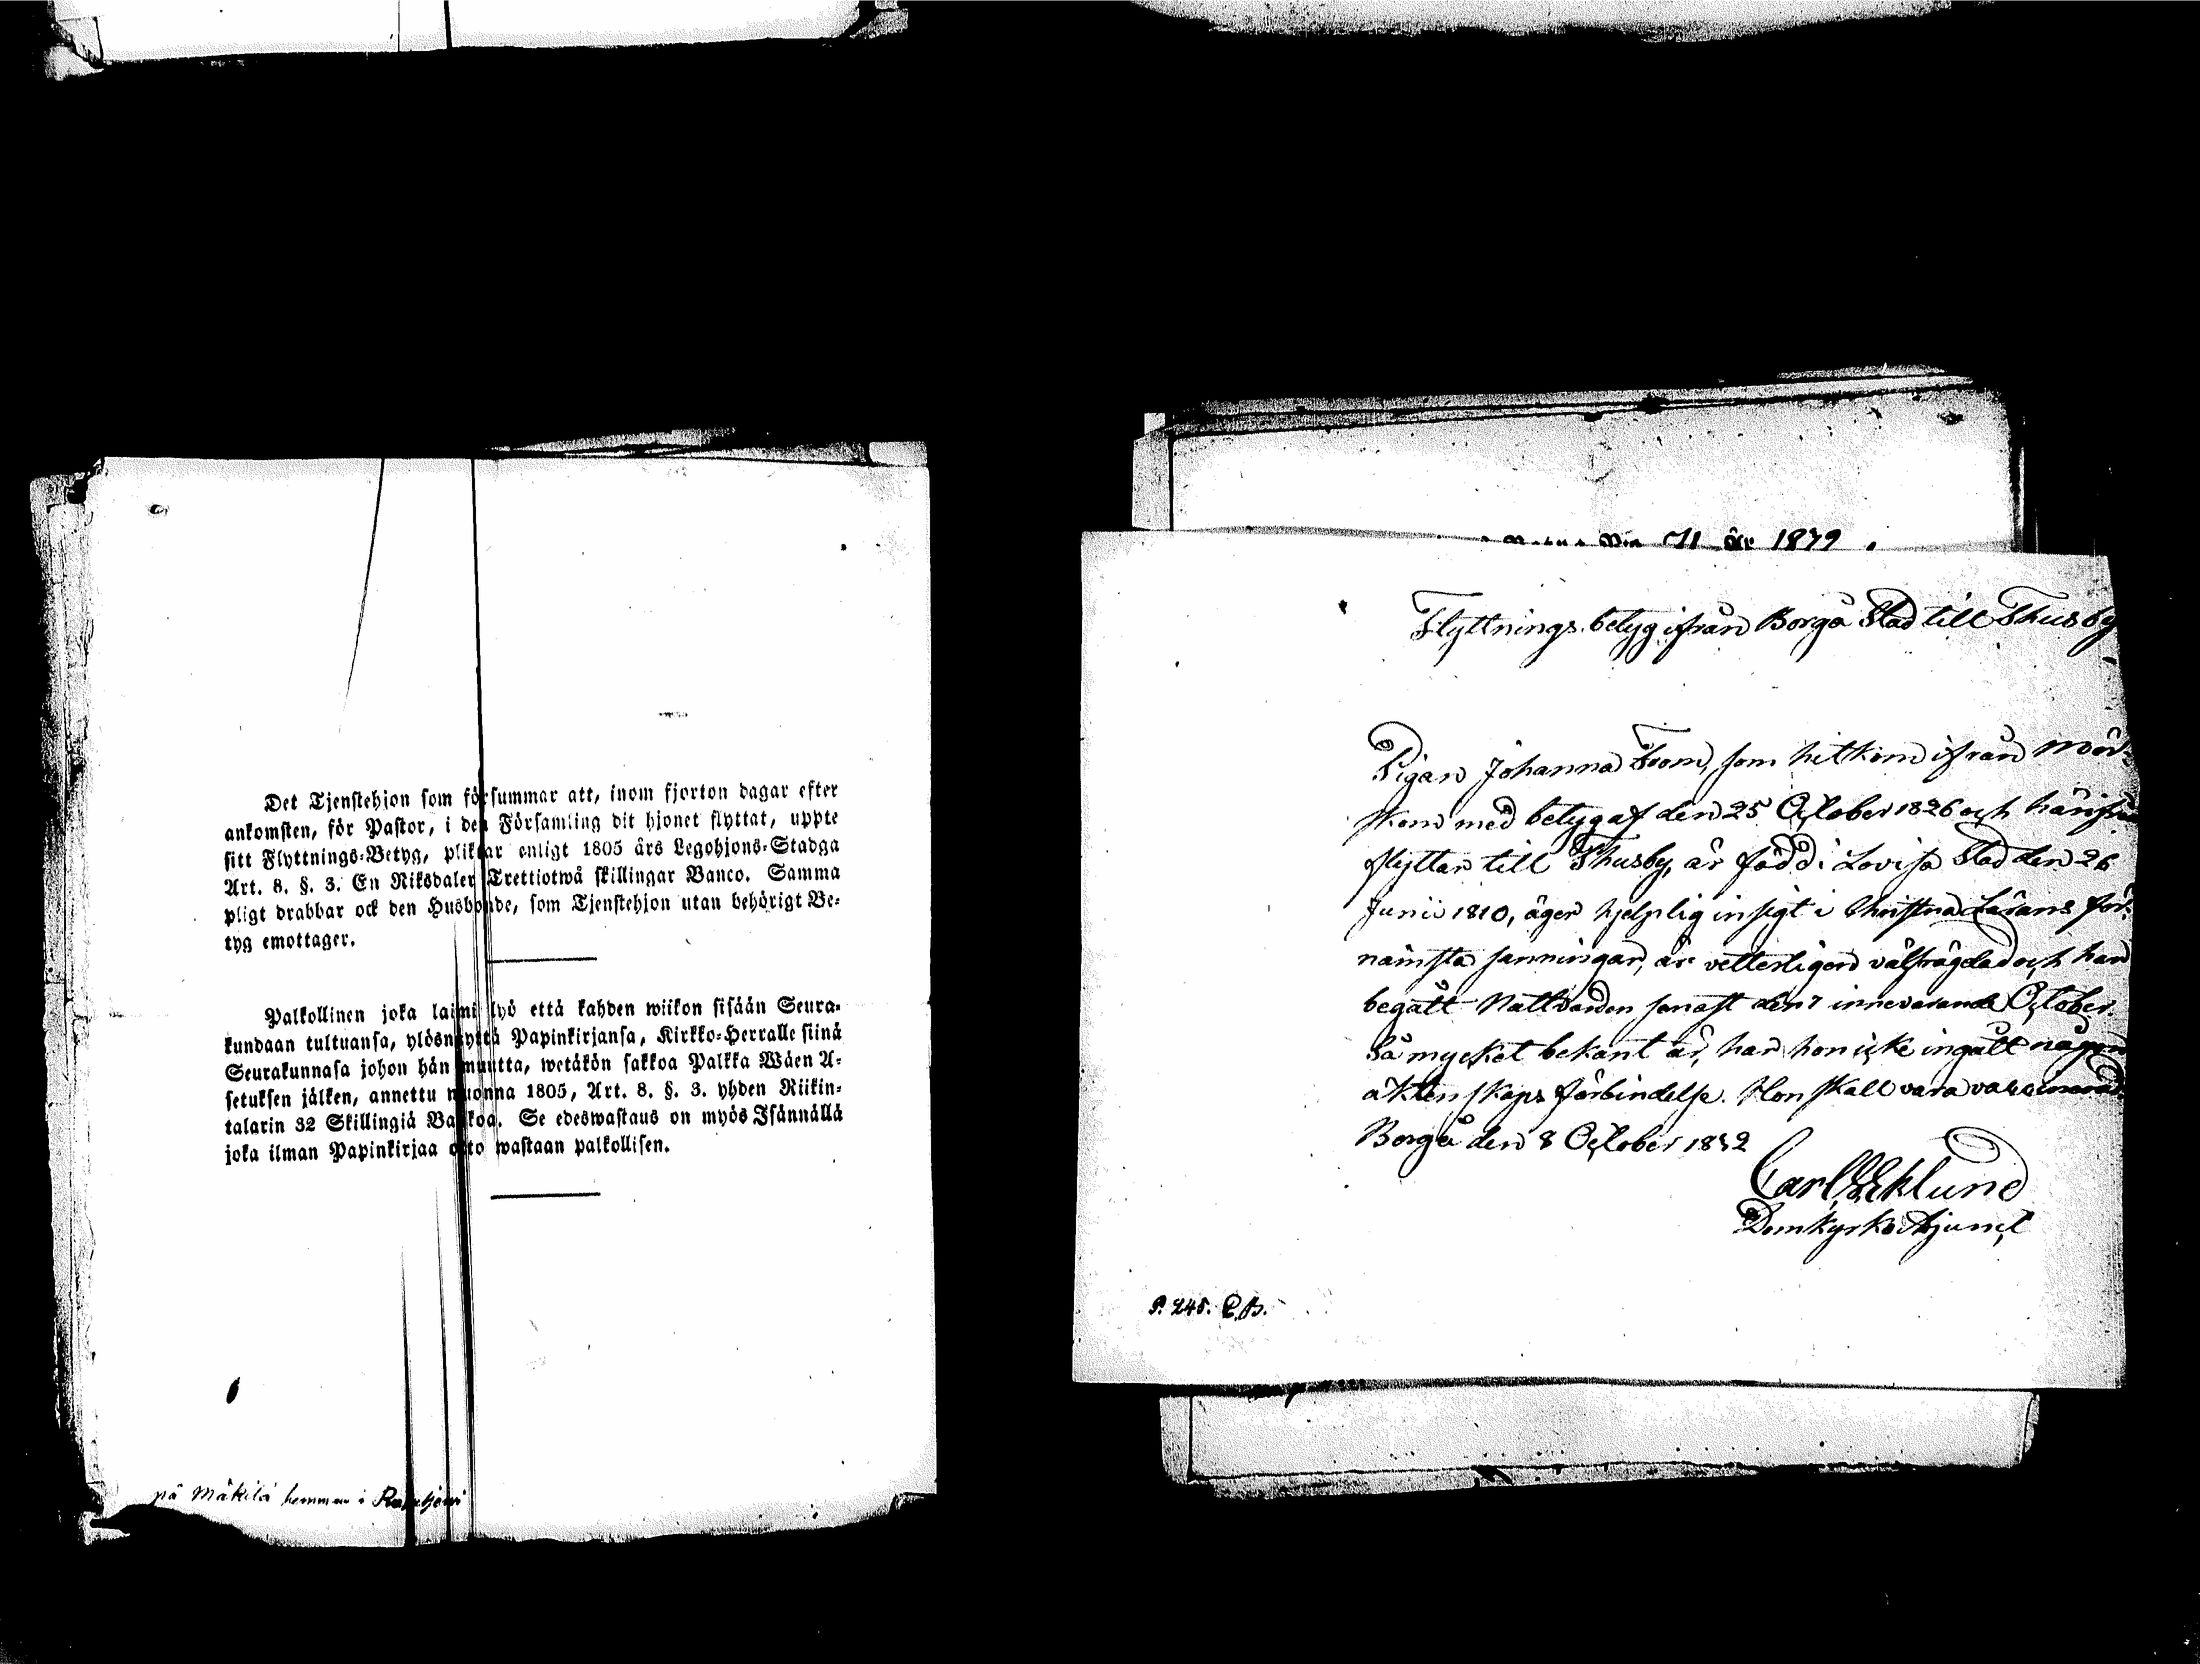 Det Tjenstehjon som försummar att, inom fjorton dagar efter
ankomsten, för Pastor, i den Församling dit hjonet flyttat, uppte
sitt Flyttnings-Betyg, pliktar enligt 1805 års Legohjons-Stadga
Art. 8. §. 3. En Riksdaler Trettiotwå skillingar Banco. Samma
pligt drabbar ock den Husbonde, som Tjenstehjon utan behörigt Be-
tyg emottager.
Palkollinen joka laimi lyö että kahden wiikon sisään Seura-
kundaan tultuansa, ylösnäyttä Papinkirjansa, Kirkko-Herralle siinä
Seurakunnasa johon hän muutta, wetäkön sakkoa Palkka Wäen A-
setuksen jälken, annettu wuonna 1805, Art. 8. §. 3. yhden Riikin-
talarin 32 Skillingiä Bankoa. Se edeswastaus on myös Isännällä
joka ilman Papinkirjaa otto wastaan palkollisen.
på Mäkilä hemman i
år 1879
Flyttnings-betyg ifrån Borgå Stad till Thusby
Pigan Johanna From, som hitkom ifrån Mör-
skom med betyg af den 25 October 1826 och härifrån
flyttar till Thusby, är född i Lovisa Stad den 26
Junii 1810, äger hjelplig insigt i Christna Lärans för-
nämsta sanningar, är vetterligen välfrägdad och har
begått Nattvarden senast den 7 innevarande October.
Så mycket bekant är, har hon icke ingått någon
äktenskaps förbindelse. Hon skall vara vaccinerad.
Borgå den 8 October 1832
Carl Eklund
Domkyrko Adjunct
P. 248. C.B.